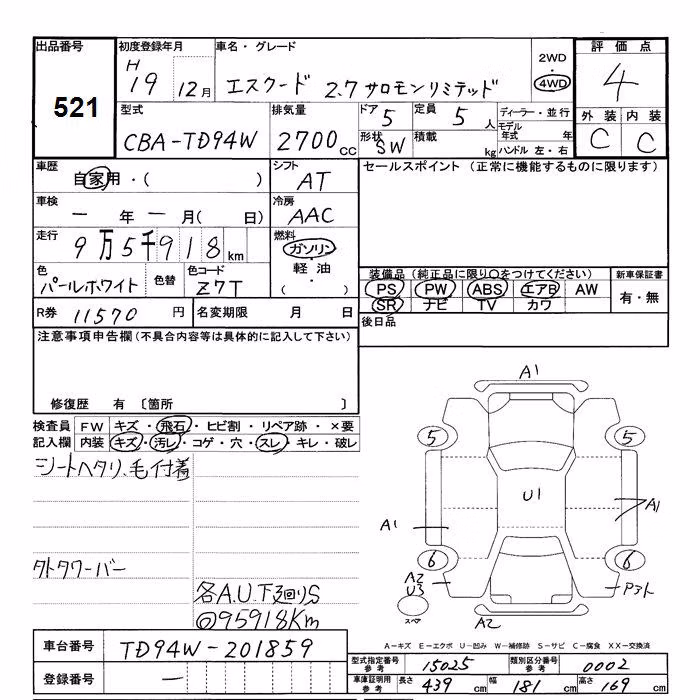 出品番号
521
初度登録年月
H
19 12月
車名・グレード
エスクード 2.7 サロモンリミテッド
2WD
・
4WD
評価点
4
外装 内装
C C
型式
CBA-TD94W
排気量
2700 cc
ドア 5
形状 SW
定員 5 人
積載 kg
ディーラー・並行
モデル年式 年
ハンドル 左・右
車歴
自家用・( )
シフト
AT
セールスポイント (正常に機能するものに限ります)
車検
一 年 一 月( 日)
冷房
AAC
走行
9万5千918 km
燃料
ガソリン
・
軽油
( )
色
パールホワイト
色替
色コード
Z7T
装備品 (純正品に限り○をつけてください)
PS PW ABS エアB AW
SR ナビ TV カワ
新車保証書
有・無
R券 11570 円
名変期限 月 日
後日品
注意事項申告欄(不具合内容等は具体的に記入して下さい)
修復歴 有 〔箇所 〕
検査員
記入欄
FW キズ・飛石・ヒビ割・リペア跡・×要
内装 キズ・汚レ・コゲ・穴・スレ・キレ・破レ
シートヘタリ、毛付着
タトタワーバー
各A.U.下廻りS
◎95918Km
A1
5 5
U1
A1 A1
6 6
A2
U3
スペア
A2
Pタト
A-キズ E-エクボ U-凹み W-補修跡 S-サビ C-腐食 XX-交換済
車台番号
TD94W-201859
登録番号
一
型式指定番号
参考
15025
類別区分番号
参考
0002
車庫証明用
参考
長さ 439 cm 幅 181 cm 高さ 169 cm